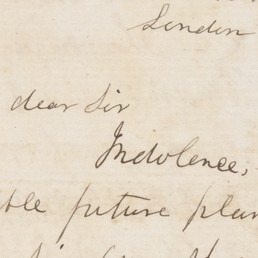 London
dear Sir
Indolence,
ble future plan